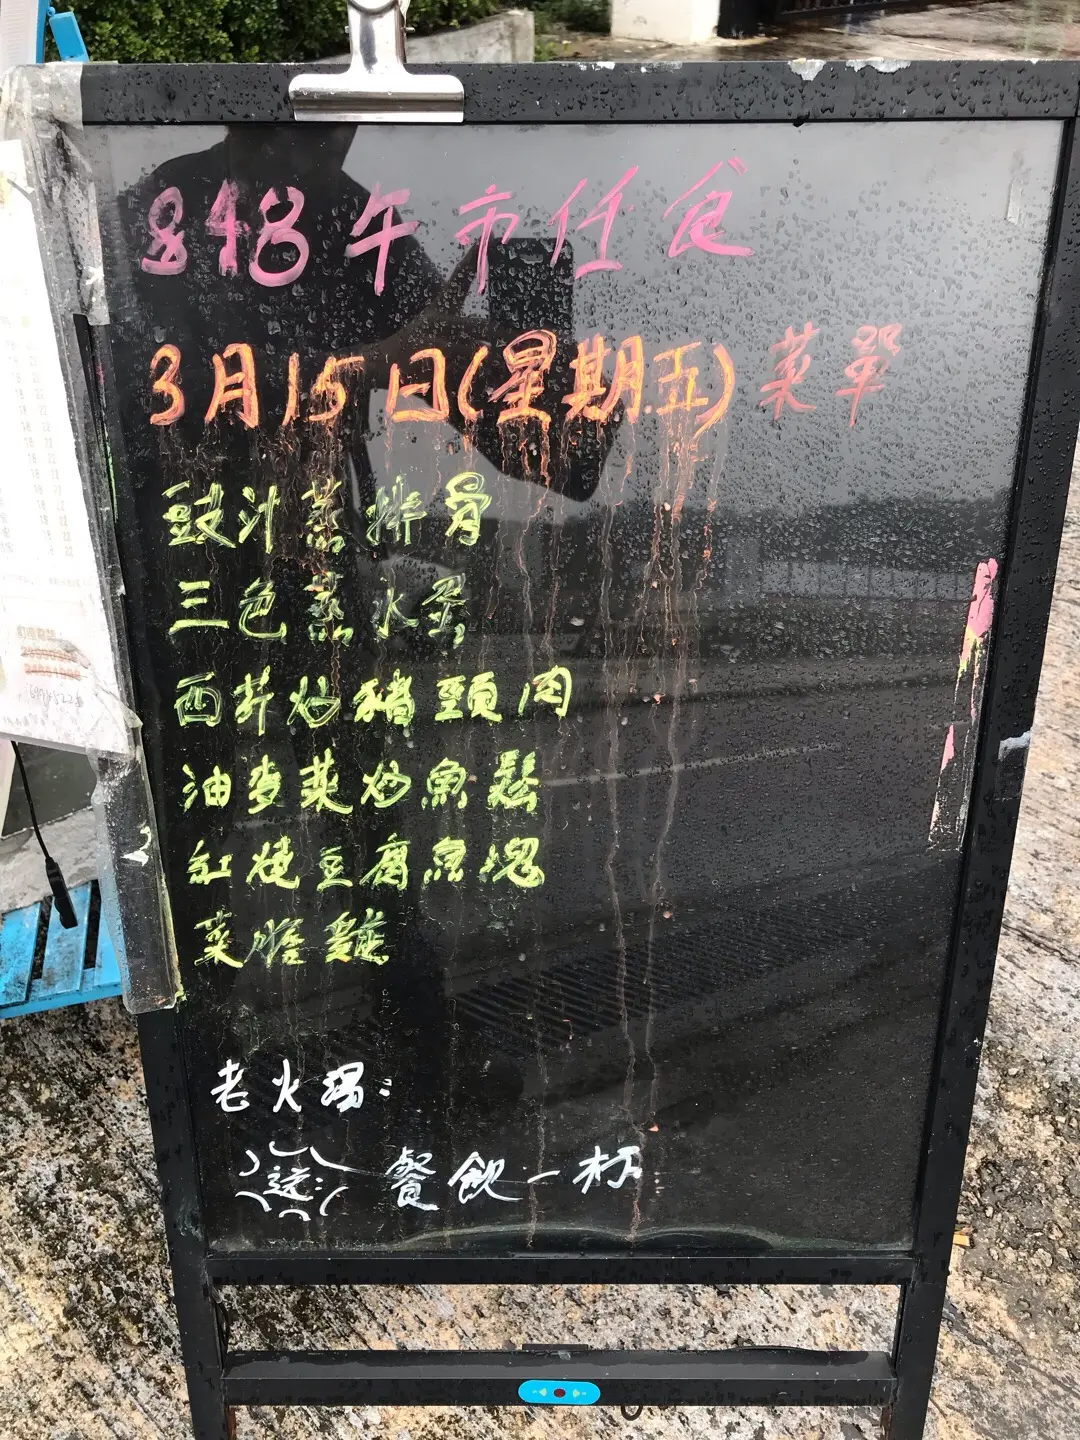 848午市任食
3月15日(星期五)菜單
豉汁蒸排骨
三色蒸水蛋
西芹炒豬頸肉
油麥菜炒魚鬆
紅燒豆腐魚塊
菜 麵
老火湯:
送: 餐飲一杯